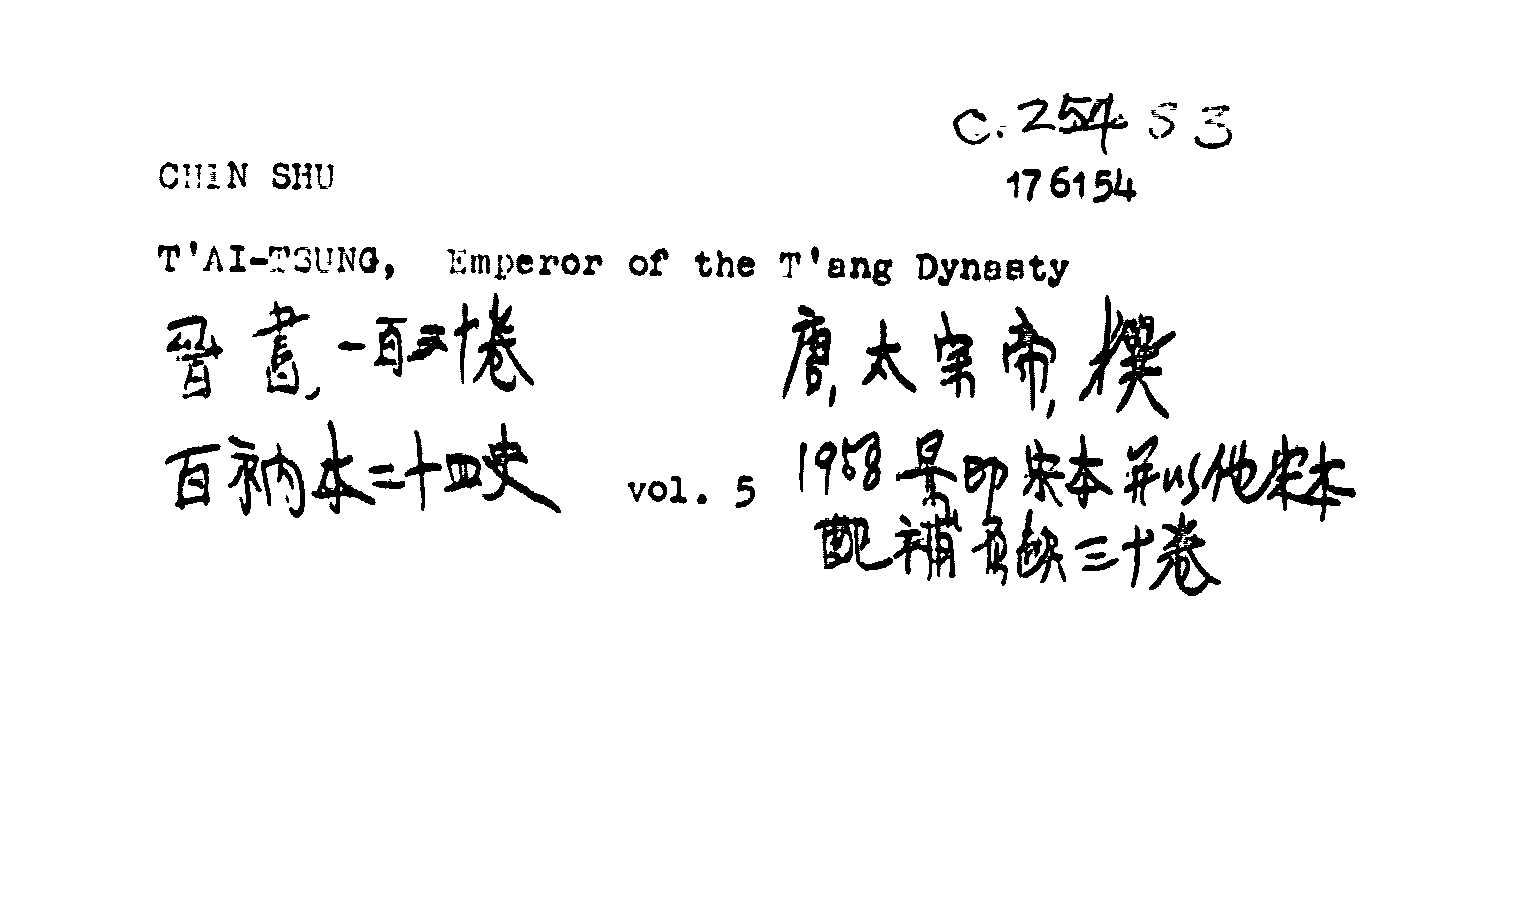 C. 254 S 3
CHIN SHU
176154
T'AI-TSUNG, Emperor of the T'ang Dynasty
晉書, 一百三十卷 唐, 太宗帝, 撰
百衲本二十四史 vol. 5 1958 景印宋本并以他宋本
配補頁缺三十卷